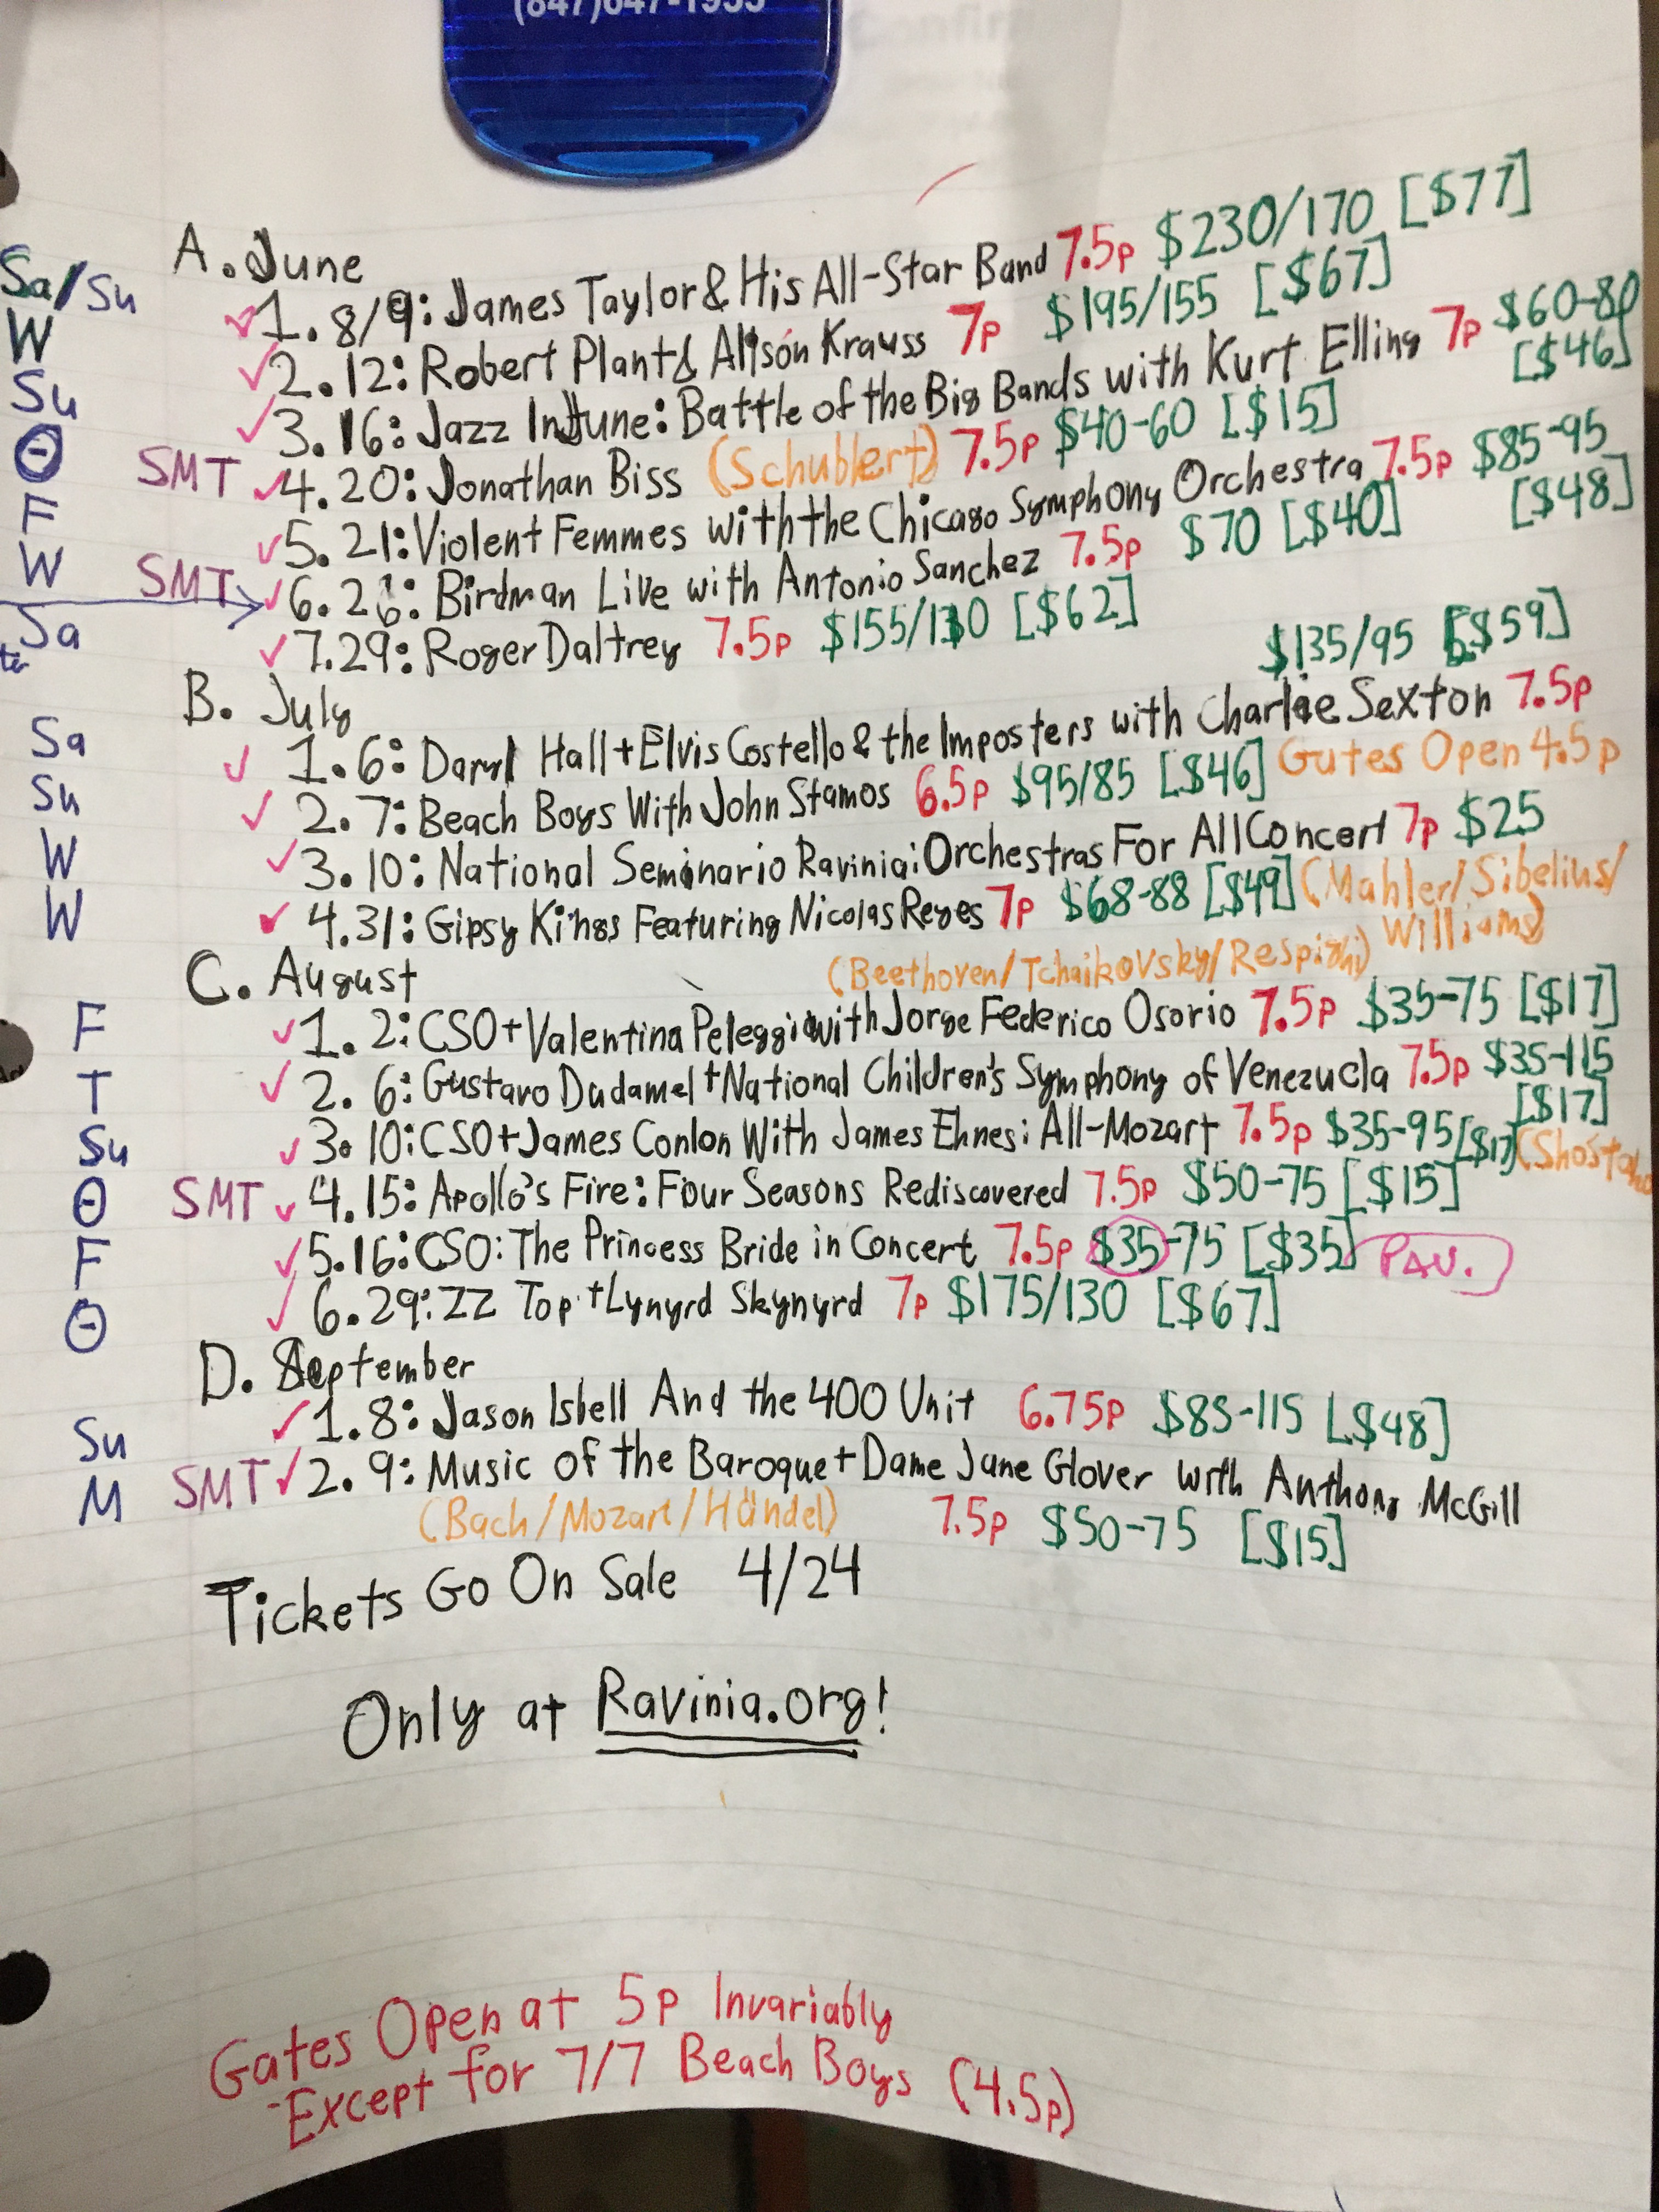 (847)647-1933
A. June
Sa/Su ✓1. 8/9: James Taylor & His All-Star Band 7.5p $230/170 [$77]
W ✓2. 12: Robert Plant & Alison Krauss 7p $195/155 [$67]
Su ✓3. 16: Jazz In June: Battle of the Big Bands with Kurt Elling 7p $60-80 [$46]
Θ SMT ✓4. 20: Jonathan Biss (Schubert) 7.5p $40-60 [$15]
F ✓5. 21: Violent Femmes with the Chicago Symphony Orchestra 7.5p $85-95 [$48]
W SMT ✓6. 26: Birdman Live with Antonio Sanchez 7.5p $70 [$40]
Sa ✓7. 29: Roger Daltrey 7.5p $155/130 [$62]
B. July
Sa ✓1. 6: Daryl Hall + Elvis Costello & the Imposters with Charlie Sexton 7.5p $135/95 [$59]
Su ✓2. 7: Beach Boys With John Stamos 6.5p $95/85 [$46] Gates Open 4.5p
W ✓3. 10: National Seminario Ravinia: Orchestras For All Concert 7p $25
(Mahler/Sibelius/Williams)
W ✓4. 31: Gipsy Kings Featuring Nicolas Reyes 7p $68-88 [$49]
C. August
(Beethoven/Tchaikovsky/Respighi)
F ✓1. 2: CSO + Valentina Peleggi with Jorge Federico Osorio 7.5p $35-75 [$17]
T ✓2. 6: Gustavo Dudamel + National Children's Symphony of Venezuela 7.5p $35-115 [$17]
(Shostako
Su ✓3. 10: CSO + James Conlon With James Ehnes: All-Mozart 7.5p $35-95 [$17]
Θ SMT ✓4. 15: Apollo's Fire: Four Seasons Rediscovered 7.5p $50-75 [$15]
F ✓5. 16: CSO: The Princess Bride in Concert 7.5p $35-75 [$35] PAV.
Θ ✓6. 29: ZZ Top + Lynyrd Skynyrd 7p $175/130 [$67]
D. September
Su ✓1. 8: Jason Isbell And the 400 Unit 6.75p $85-115 [$48]
M SMT ✓2. 9: Music of the Baroque + Dame Jane Glover with Anthony McGill
(Bach/Mozart/Händel) 7.5p $50-75 [$15]
Tickets Go On Sale 4/24
Only at Ravinia.org!
Gates Open at 5p Invariably
-Except for 7/7 Beach Boys (4.5p)